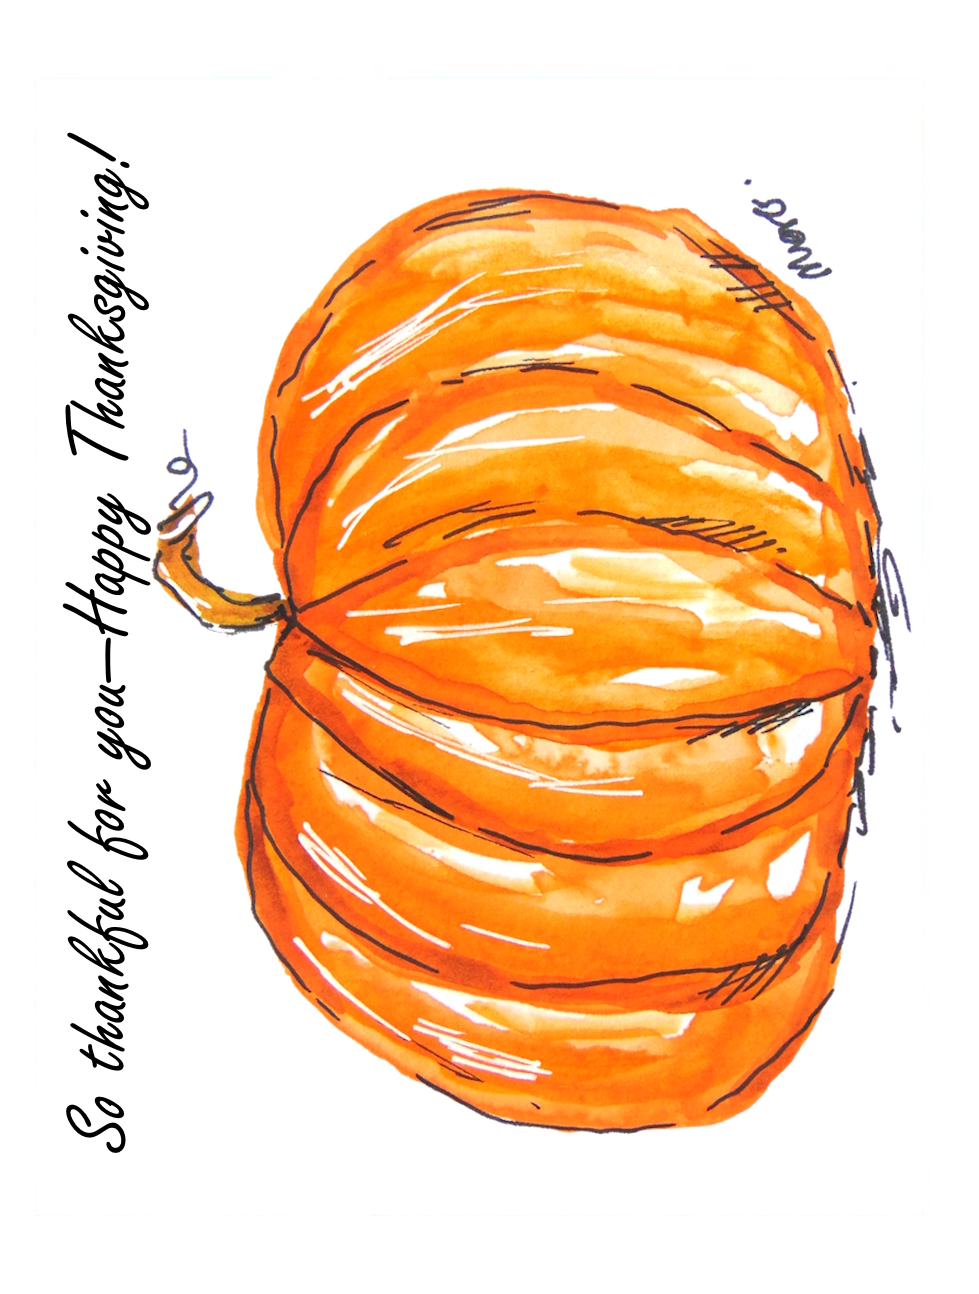 So thankful for you—Happy Thanksgiving!